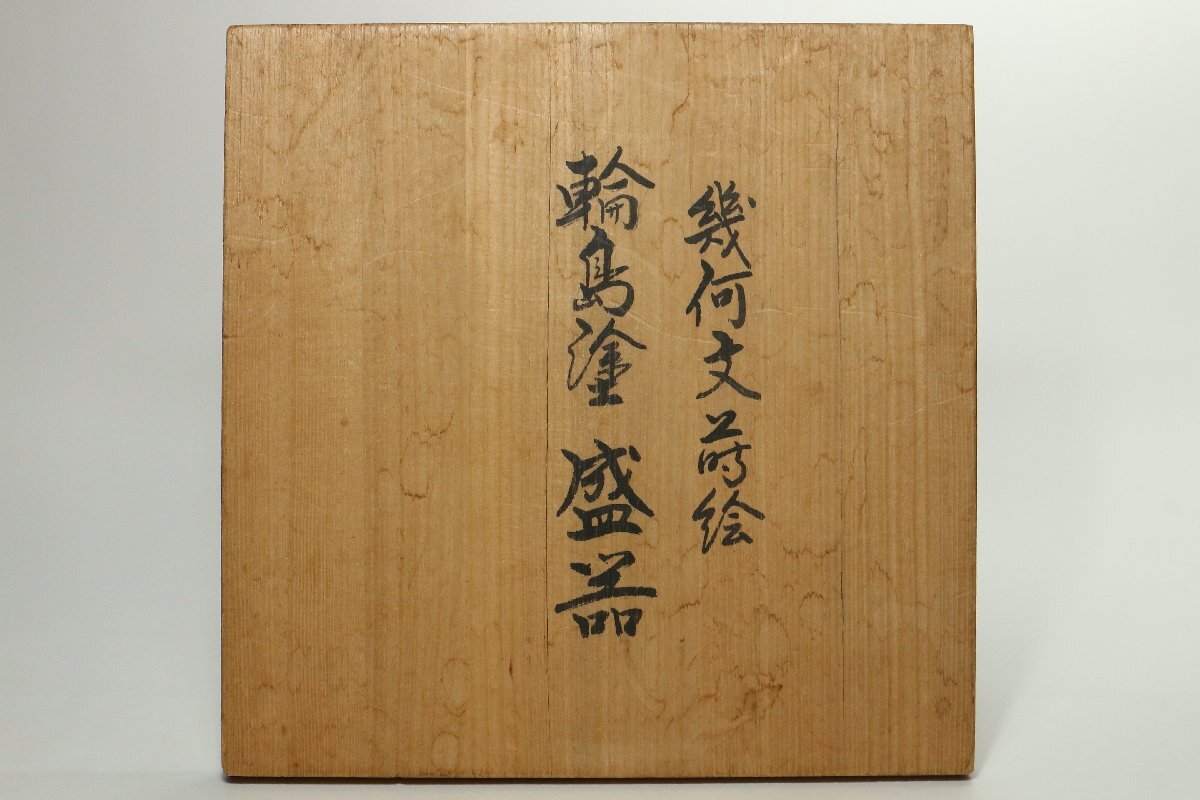 幾何文蒔絵
輪島塗 盛器